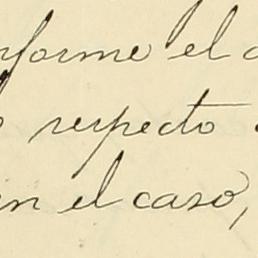 nforme el
respecto
en el caso,